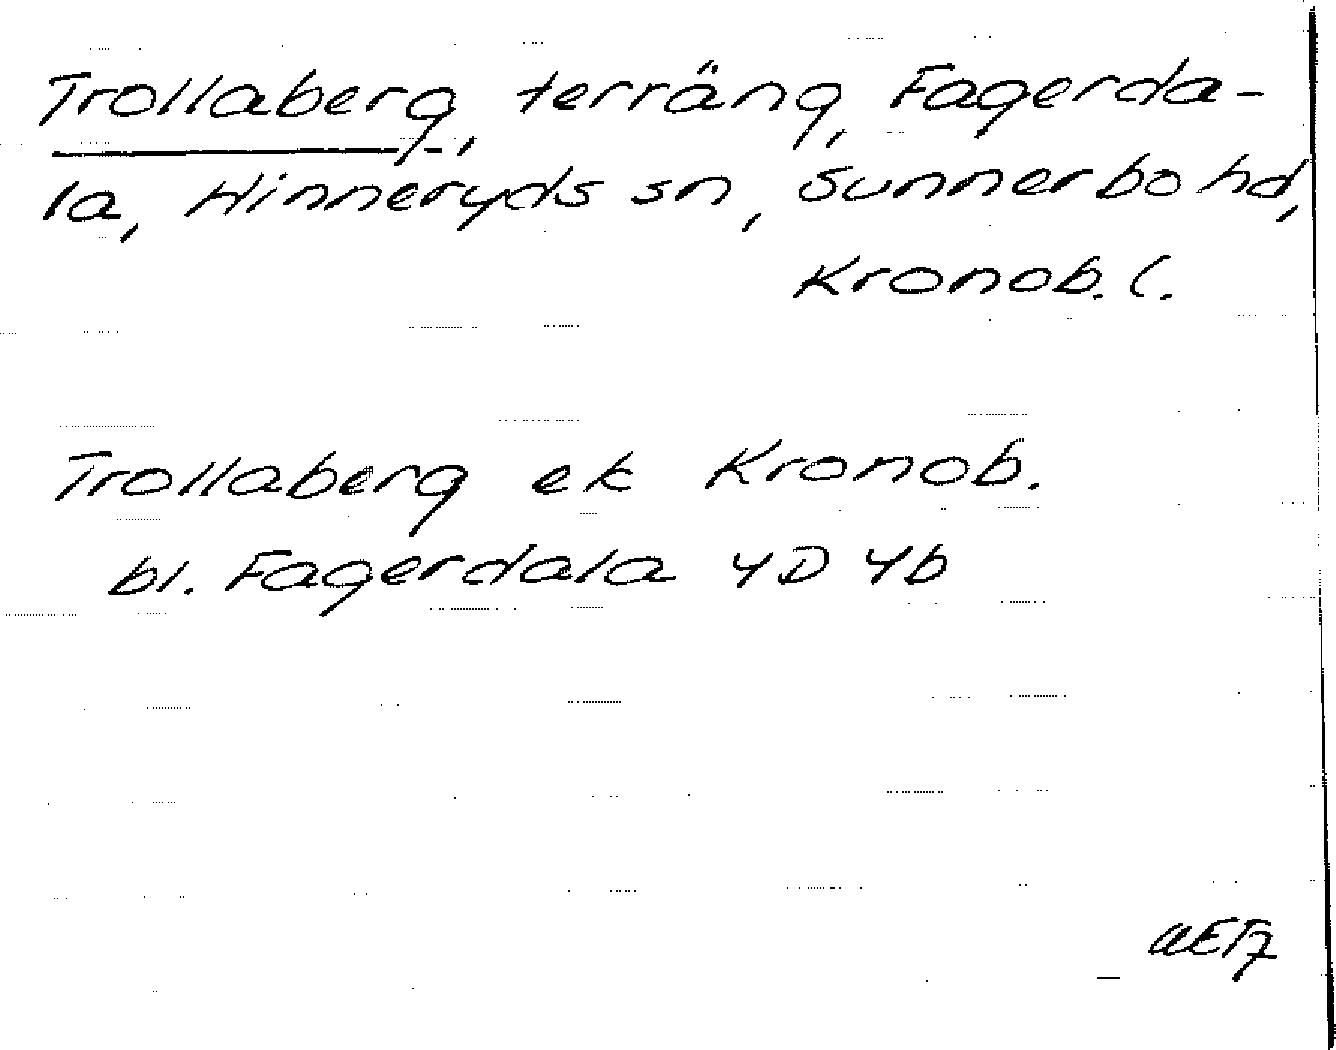 Trollaberg, terräng, Fagerda-
la, Hinneryds sn, Sunnerbo hd,
Kronob. l.
Trollaberg ek Kronob.
bl. Fagerdala 4D 4b